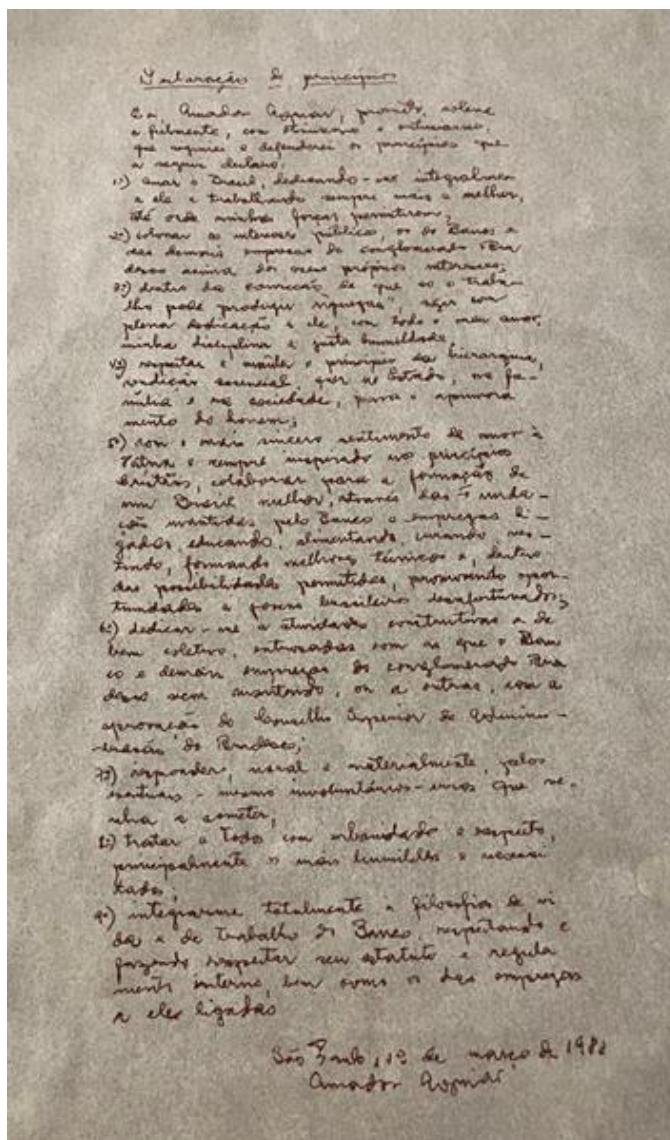 Declaração de princípios
Eu, Amador Aguiar, prometo, solene
e fielmente, com otimismo e entusiasmo,
que seguirei e defenderei os princípios que
a seguir declaro:
1º) amar o Brasil, dedicando-me integralmen
a ele e trabalhando sempre mais e melhor,
até onde minhas forças permitirem;
2º) colocar os interesses públicos, os do Banco e
das demais empresas do conglomerado Bra
desco acima dos meus próprios interesses;
3º) dentro da convicção de que "só o traba-
lho pode produzir riquezas", agir com
plena dedicação a ele, com todo o meu amor,
minha disciplina e justa humildade;
4º) respeitar e manter o princípio da hierarquia,
condição essencial, quer no Estado, na fa-
mília e na sociedade, para o aprimora
mento do homem;
5º) com o mais sincero sentimento de amor à
Pátria e sempre inspirado nos princípios
cristãos, colaborar para a formação de
um Brasil melhor, através das Funda-
ções mantidas pelo Banco e empresas li-
gadas, educando, alimentando, curando, ves-
tindo, formando melhores técnicos e, dentro
das possibilidades permitidas, promovendo opor-
tunidades a jovens brasileiros desafortunados;
6º) dedicar-me a atividades construtivas e de
bem coletivo, entrosadas com as que o Ban
co e demais empresas do conglomerado Bra
desco vem mantendo, ou a outras, com a
aprovação do Conselho Superior de Adminis-
tração do Bradesco;
7º) responder, moral e materialmente, pelos
eventuais - mesmo involuntários - erros que ve-
nha a cometer;
8º) tratar a todos com urbanidade e respeito,
principalmente os mais humildes e necessi
tados;
9º) integrarme totalmente a filosofia de vi
da e de trabalho do Banco, respeitando e
fazendo respeitar seu estatuto e regula
mento interno, bem como os das empresas
a eles ligadas
São Paulo, 1º de março de 1981
Amador Aguiar